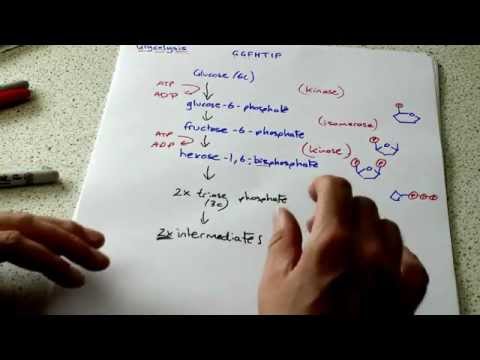 Glycolysis
GGFHTIP
Glucose (6c)
ATP
ADP
(kinase)
glucose-6-phosphate
(isomerase)
fructose-6-phosphate
ATP
ADP
(kinase)
hexose-1,6-bisphosphate
2x triose phosphate
(3c)
2x intermediates